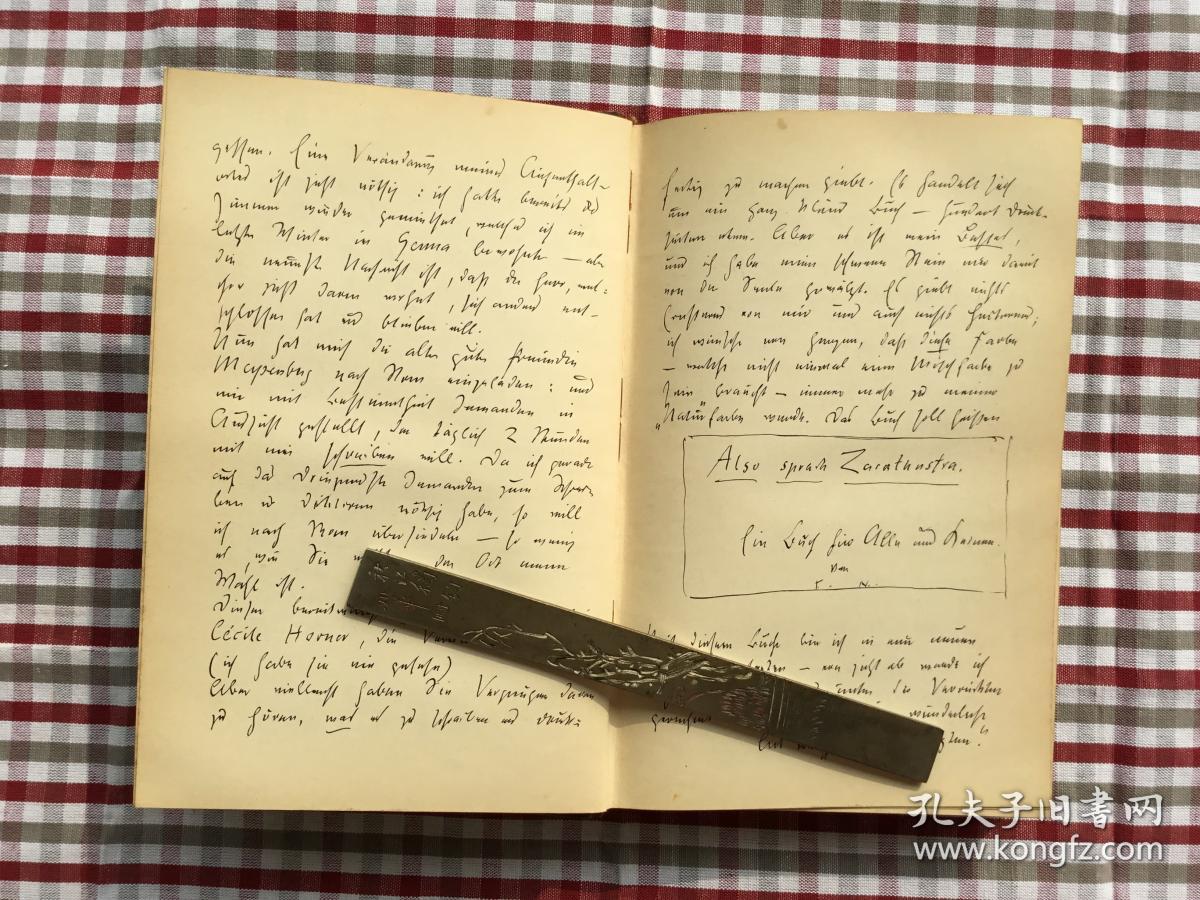 gessen. Eine Veränderung meines Aufenthalts-
ortes ist jetzt nöthig: ich hatte bereits das
Zimmer wieder gemiethet, welches ich im
letzten Winter in Genua bewohnte — aber
die neueste Nachricht ist, daß der Herr, wel-
cher jetzt darin wohnt, sich anders ent-
schlossen hat und bleiben will.
Nun hat mich die alte gute Freundin
Meysenbug nach Rom eingeladen: und
mir mit Bestimmtheit Jemanden in
Aussicht gestellt, der täglich 2 Stunden
mit mir schreiben will. Da ich gerade
auf das Dringendste Jemanden zum Schrei-
ben u Diktiren nöthig habe, so will
ich nach Rom übersiedeln — so wenig
es, wie Sie der Ort meiner
Wahl ist.
Dieser
Cécile Horner, die
(ich habe sie nie gesehn)
Aber vielleicht haben Sie Vergnügen daran
zu hören, was es zu schreiben und druck-
fertig zu machen giebt. Es handelt sich
um ein ganz kleines Buch — hundert Druck-
seiten etwa. Aber es ist mein Bestes,
und ich habe einen schweren Stein mir damit
von der Seele gewälzt. Es giebt nichts
Ernsteres von mir und auch nichts Heitereres;
ich wünsche von Herzen, daß diese Farbe
— welche nicht einmal eine Mischfarbe zu
sein braucht — immer mehr zu meiner
„Natur"farbe werde. Das Buch soll heißen
Also sprach Zarathustra.
Ein Buch für Alle und Keinen.
Von
F. N.
diesem Buche bin ich in einen neuen
— von jetzt ab werde ich
unter die Verrückten
gerechnet wunderliche
孔夫子旧书网
www.kongfz.com